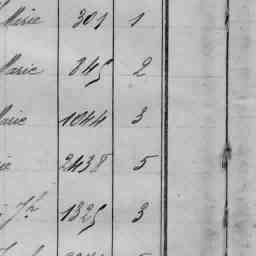 Marie 301 1
Marie 845 2
Marie 1044 3
ie 2438 5
Jh 1325 3